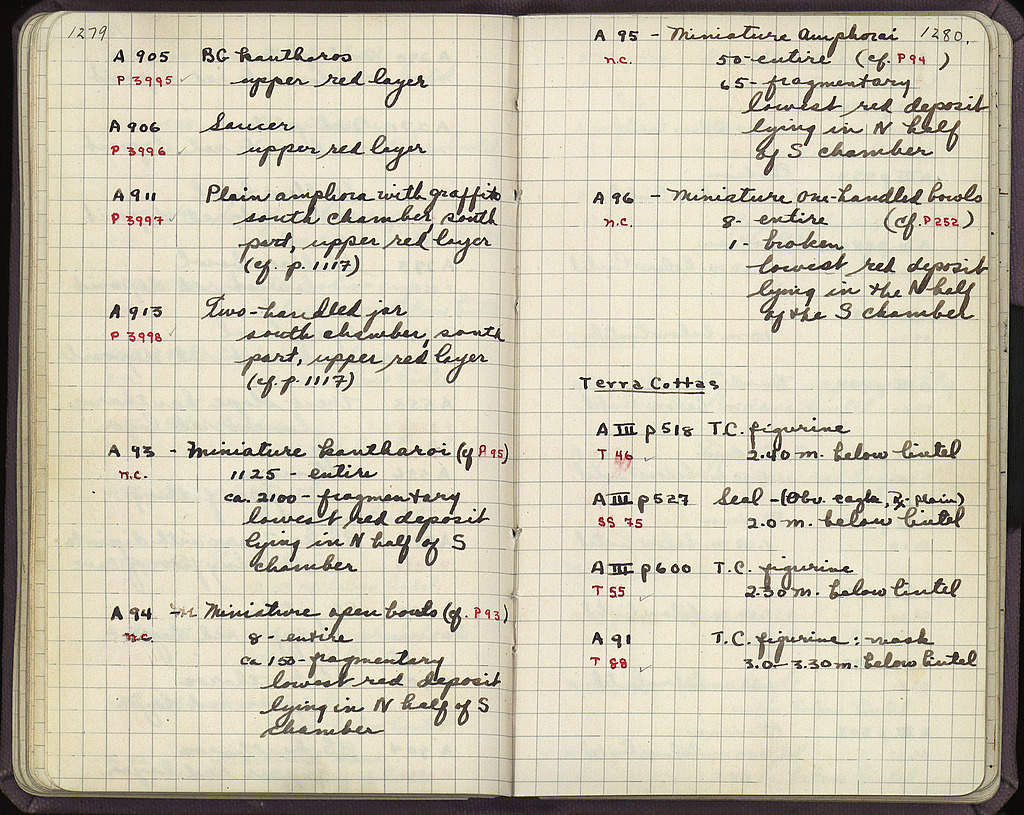 1279
A 905 BG kantharos
P 3995 ✓ upper red layer
A 906 Saucer
P 3996 ✓ upper red layer
A 911 Plain amphora with graffito
P 3997 ✓ south chamber, south
part, upper red layer
(cf. p. 1117)
A 913 Two-handled jar
P 3998 ✓ south chamber, south
part, upper red layer
(cf. p. 1117)
A 93 - Miniature kantharoi (cf P 95)
n.c. 1125 - entire
ca. 2100 - fragmentary
lowest red deposit
lying in N half of S
chamber
A 94 - Miniature open bowls (cf. P 93)
n.c. 8 - entire
ca 150 - fragmentary
lowest red deposit
lying in N half of S
chamber
1280.
A 95 - Miniature Amphorai
n.c. 50 - entire (cf. P 94)
65 - fragmentary
lowest red deposit
lying in N half
of S chamber
A 96 - Miniature one-handled bowls
n.c. 8 - entire (cf. P 252)
1 - broken
lowest red deposit
lying in the N half
of the S chamber
Terra Cottas
A III p 518 T.C. figurine
T 46 ✓ 2.40 m. below lintel
A III p 527 Seal - (Obv. eagle, Rx - plain)
SS 75 2.0 m. below lintel
A III p 600 T.C. figurine
T 55 ✓ 2.30 m. below lintel
A 91 T.C. figurine: mask
T 88 ✓ 3.0 - 3.30 m. below lintel